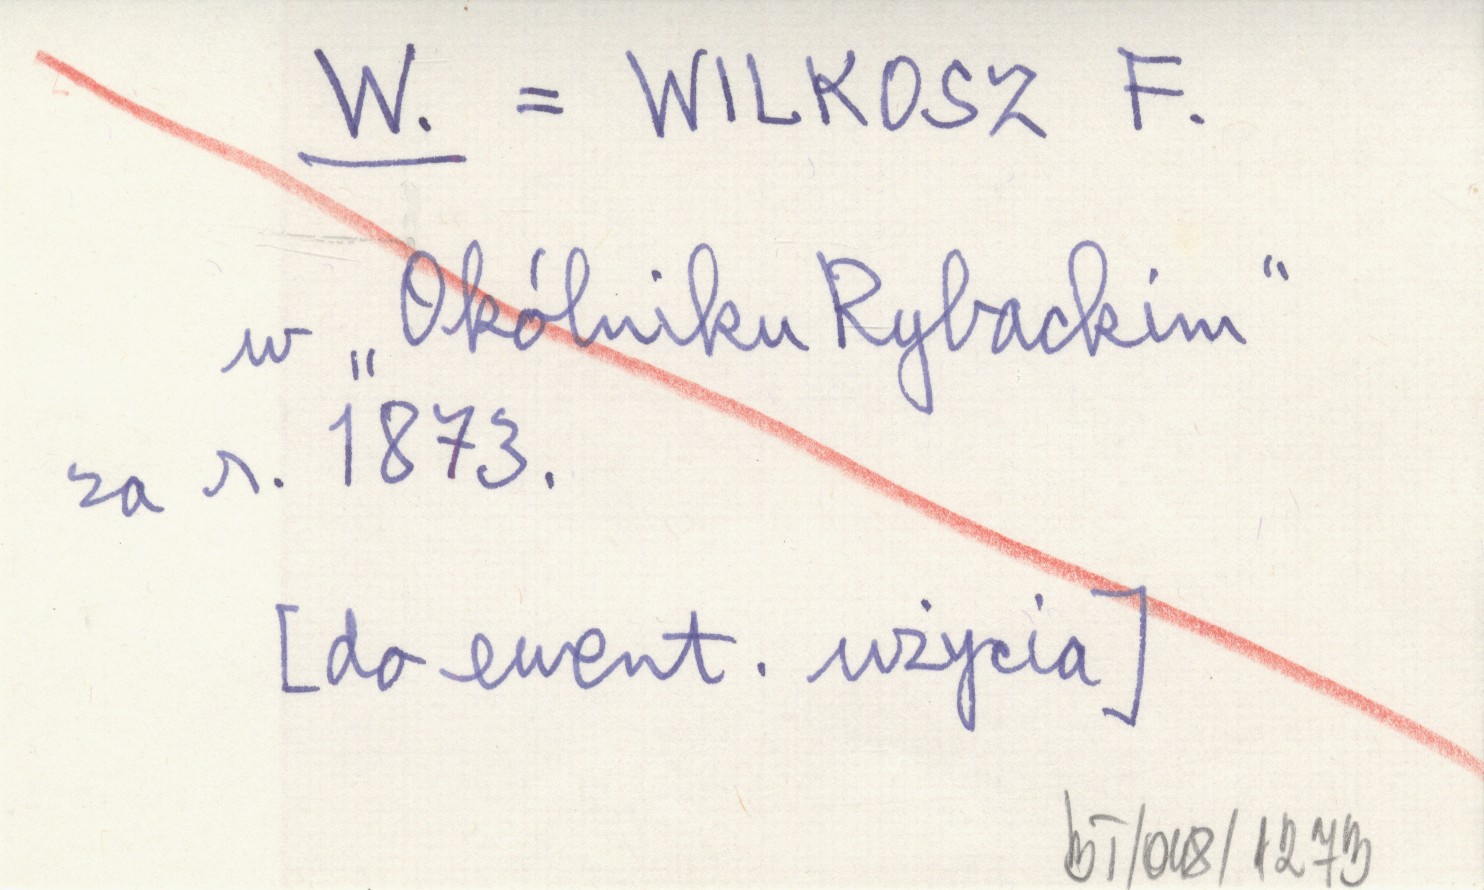 W. = WILKOSZ F.
w „Okólniku Rybackim“
za r. 1873.
[do ewent. użycia]
BT/048/1273